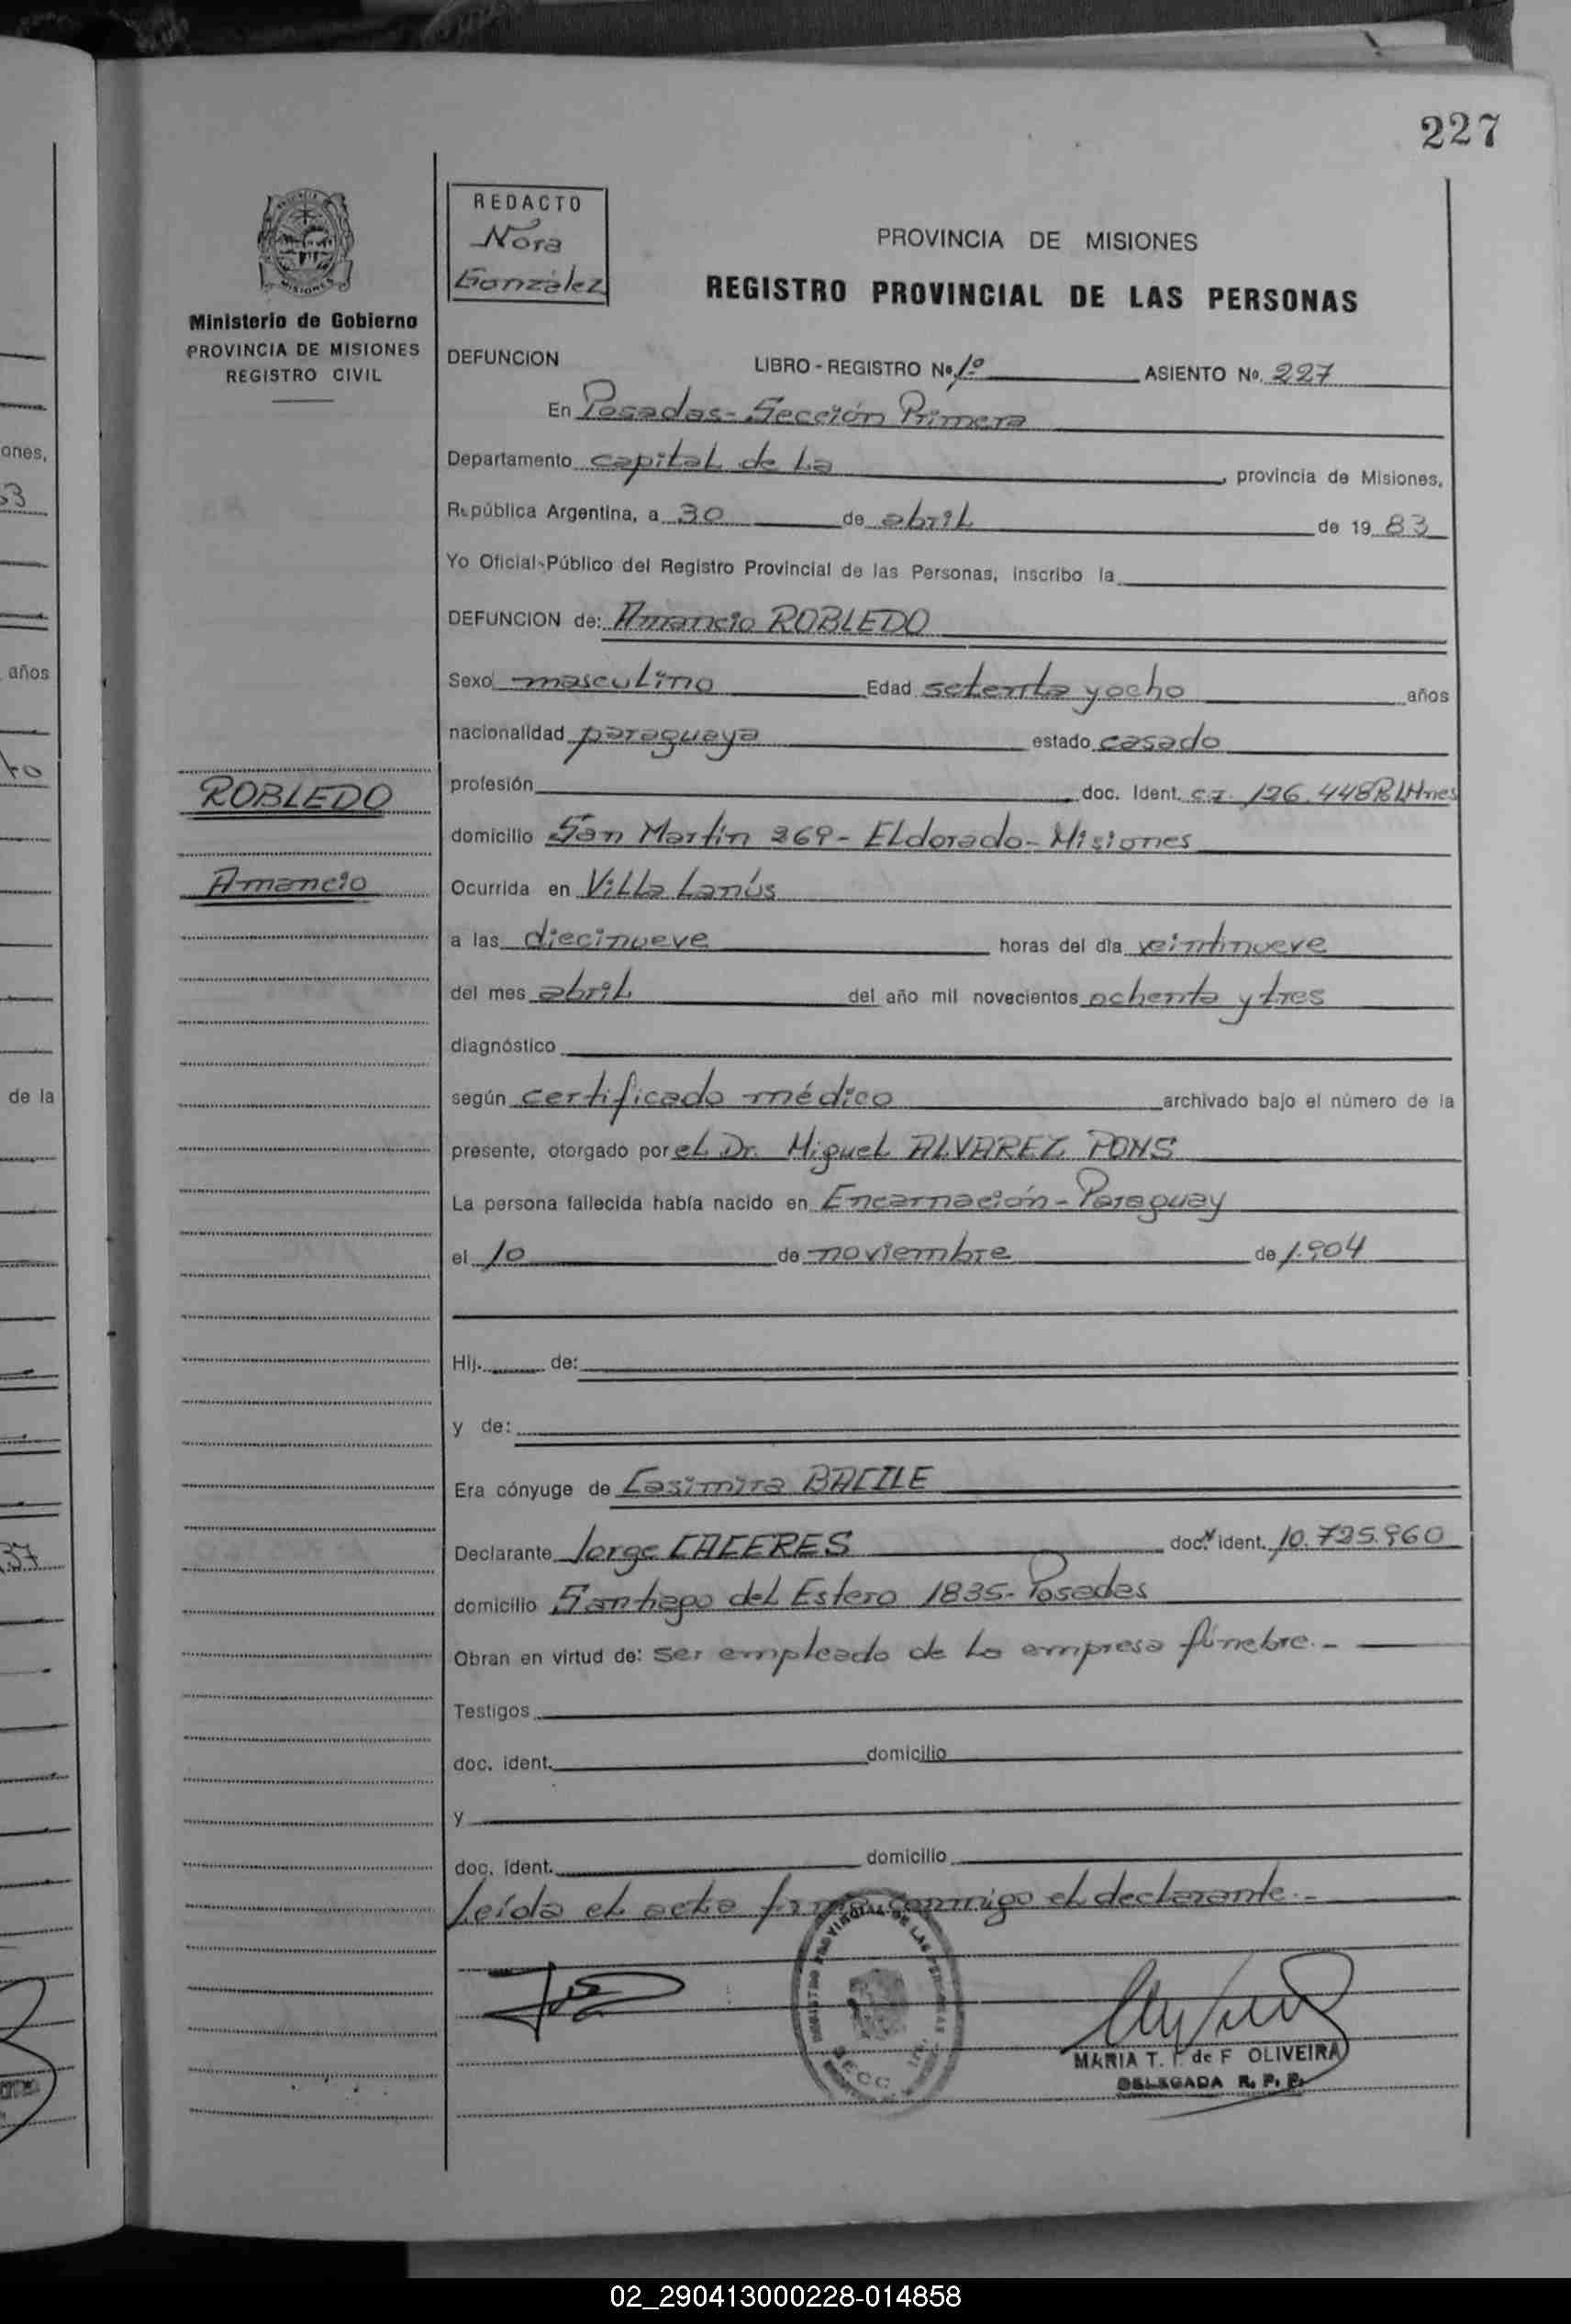 227
REDACTO
Nora
González
MISIONES
Ministerio de Gobierno
PROVINCIA DE MISIONES
REGISTRO CIVIL
PROVINCIA DE MISIONES
REGISTRO PROVINCIAL DE LAS PERSONAS
DEFUNCION LIBRO - REGISTRO Nº 1º ASIENTO Nº 227
En Posadas - Sección Primera
Departamento capital de La, provincia de Misiones,
República Argentina, a 30 de abril de 19 83
Yo Oficial Público del Registro Provincial de las Personas, inscribo la
DEFUNCION de: Amancio ROBLEDO
Sexo masculino Edad setenta y ocho años
nacionalidad paraguaya estado casado
profesión doc. Ident. c.i. 126.448
domicilio San Martín 269 - Eldorado - Misiones
ROBLEDO
Amancio
Ocurrida en Villa Lanús
a las diecinueve horas del día veintinueve
del mes abril del año mil novecientos ochenta y tres
diagnóstico
según certificado médico archivado bajo el número de la
presente, otorgado por el Dr. Miguel ALVAREZ PONS
La persona fallecida había nacido en Encarnación - Paraguay
el 10 de noviembre de 1.904
Hij. de:
y de:
Era cónyuge de Casimira BACILE
Declarante Jorge CACERES doc. ident. 10.725.960
domicilio Santiago del Estero 1835 - Posadas
Obran en virtud de: ser empleado de la empresa fúnebre.-
Testigos
doc. ident. domicilio
y
doc. ident. domicilio
Leída el acta firma conmigo el declarante.-
MARIA T. de F OLIVEIRA
DELEGADA R. P. P.
ones,
53
años
de la
37
02_290413000228-014858